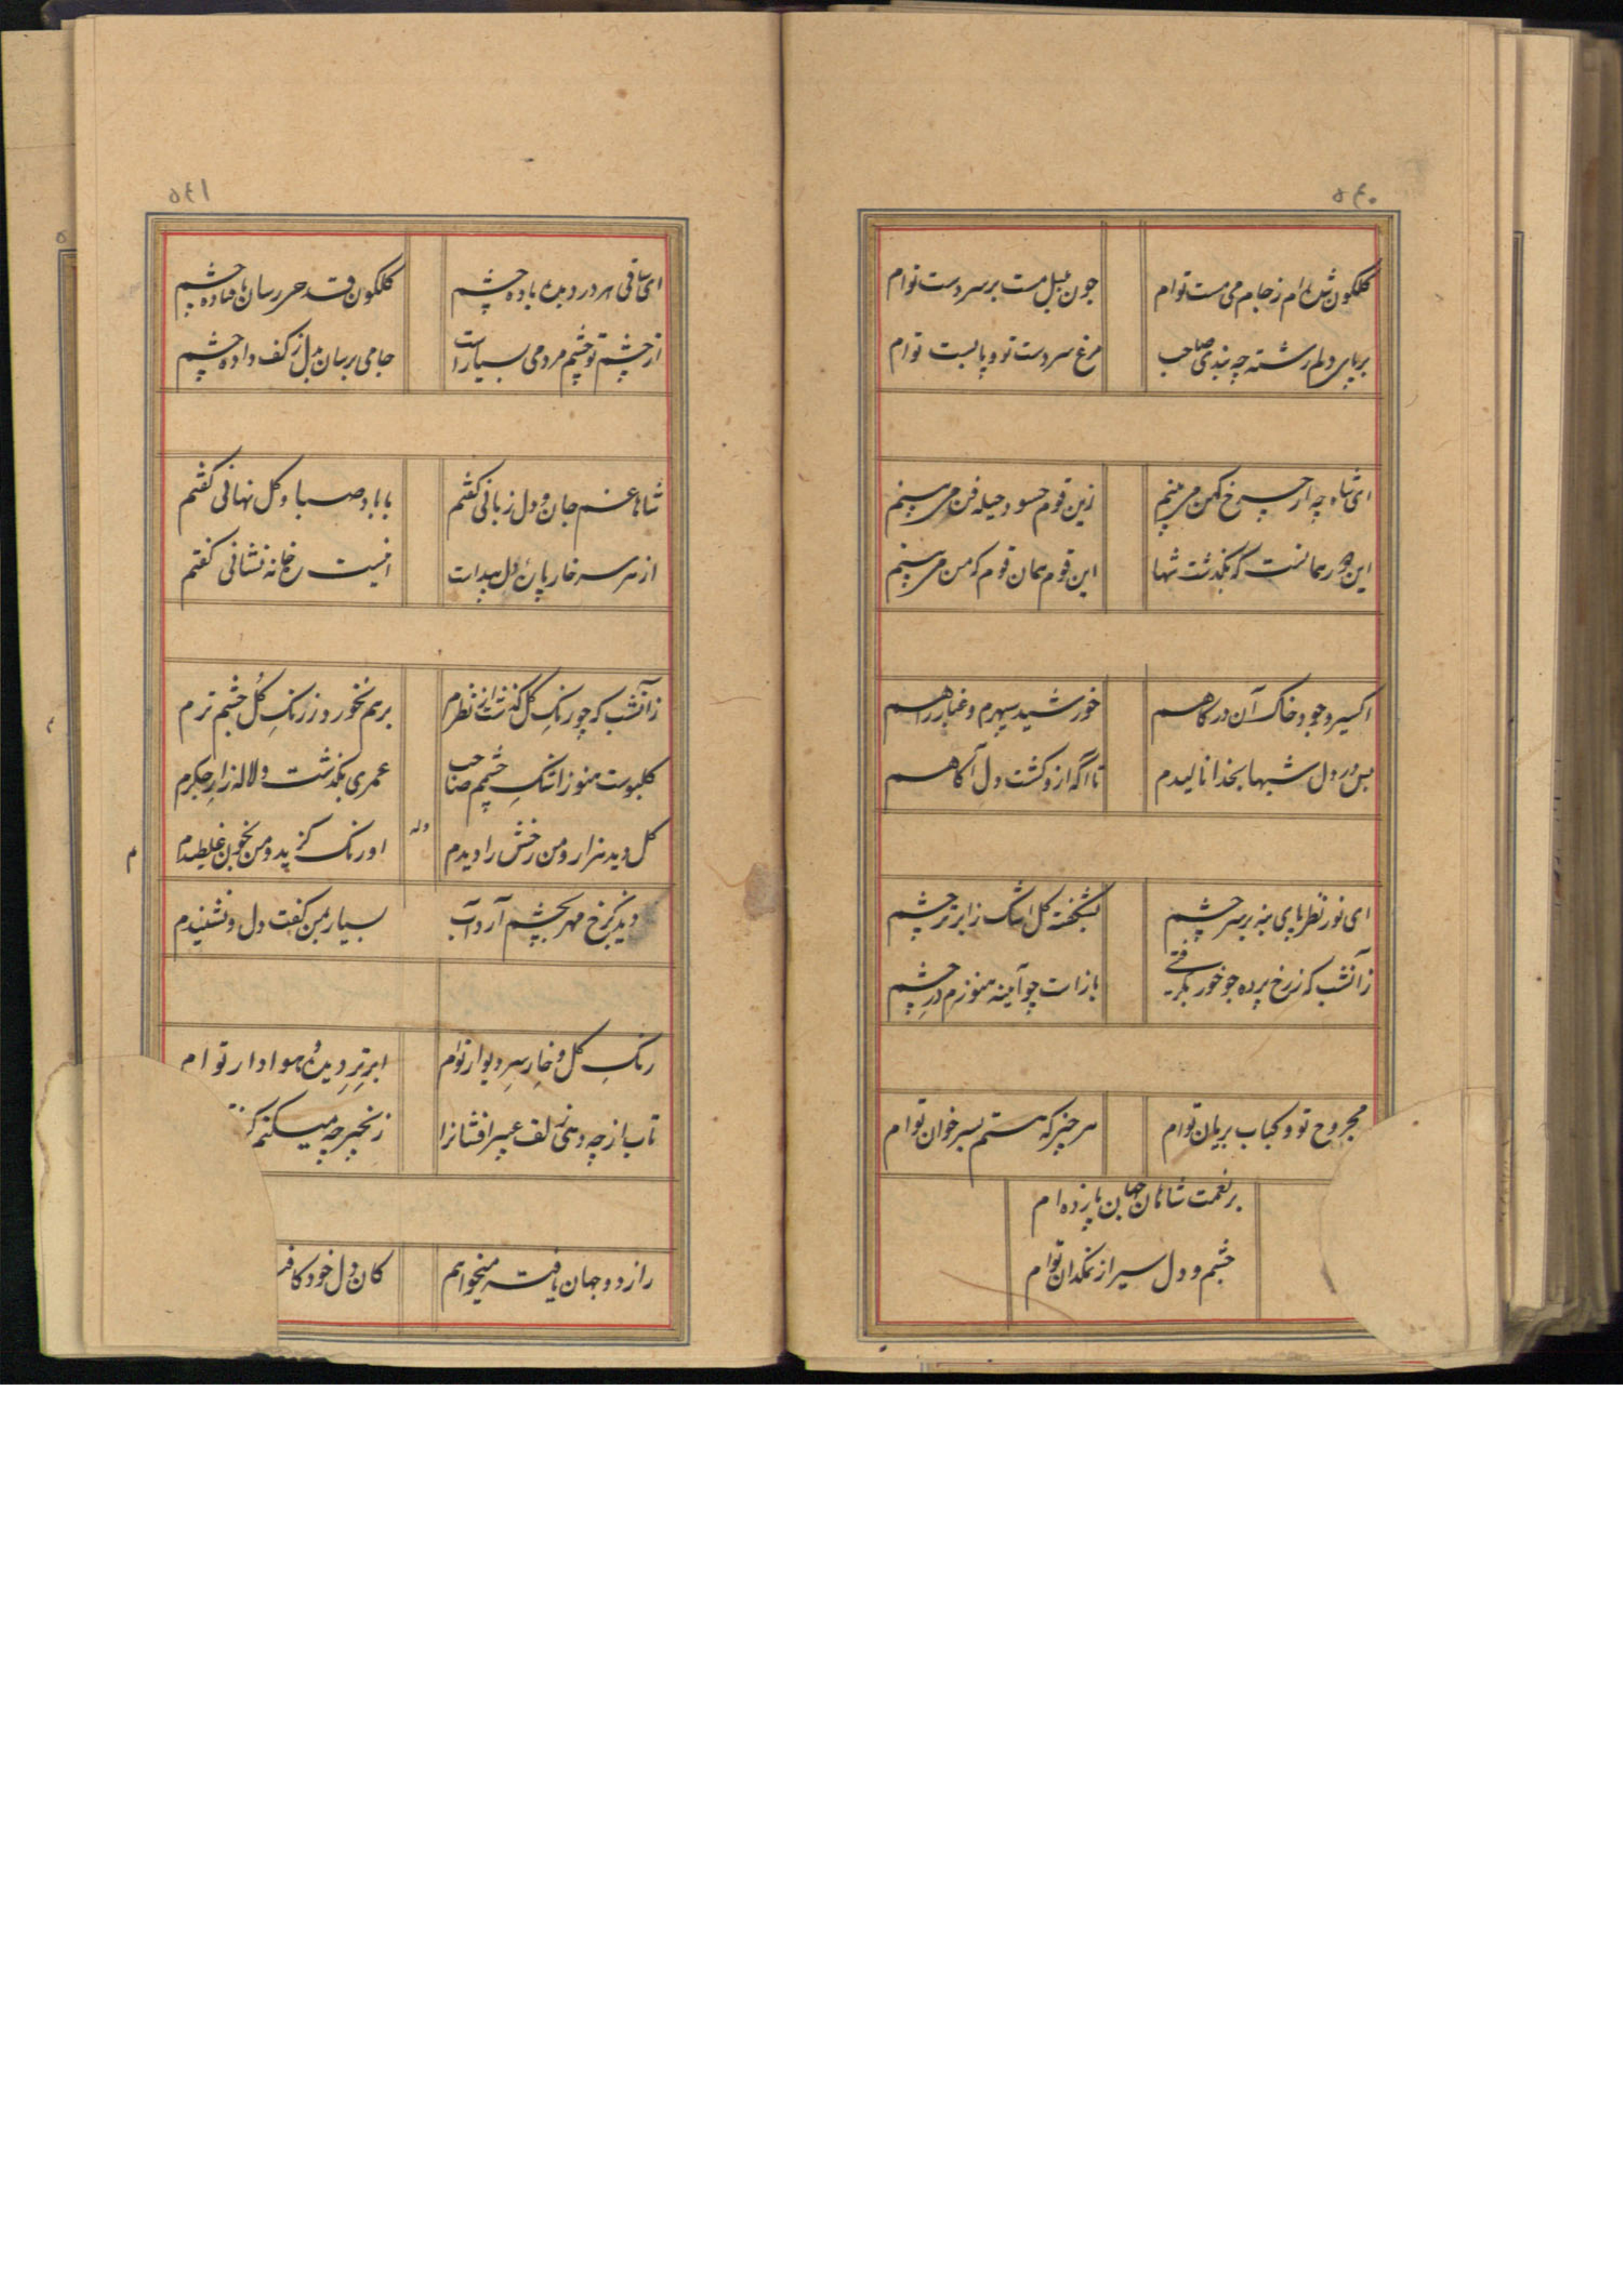 ۵۶۰
گلگون شده ام ز جام می مست توام
چون بلبل مست بر سر دست توام
بر پای دلم رشته چه بندی صاحب
مرغ سر دست تو و پابست توام
ای شاه چه از چرخ کهن می بینم
زین قوم حسود حیله فن می بینم
این دور همانست که بگذشت شها
این قوم همان قوم که من می بینم
اکسیر وجود خاک آن درگاهم
خورشید سپهرم و غبار راهم
بس در دل شبها بخدا نالیدم
تا آگه ازو گشت دل آگاهم
ای نور نظر پای بنه بر سر چشم
بشکفته گل اشک ز ابر تر چشم
زآنشب که ز رخ پرده چو خور بگرفتی
باز است چو آینه هنوزم در چشم
مجروح تو و کباب بریان توام
هر چیز که هستم بسر خوان توام
بر نعمت شاهان جهان پا زده ام
چشم و دل سیر از نمکدان توام
۵۶۱
ای ساقی هر درد بده باده چشم
گلگون قدحی رسان به افتاده چشم
از چشم تو چشم مردمی بسیار است
جامی برسان بدل ز کف داده چشم
شاها غم جان و دل زبانی گفتم
با باد صبا و گل نهانی گفتم
از هر سر خار پای دل پیداست
اینست رخ خانه نشانی گفتم
زآنشب که چو رنگِ گل گذشت از نظرم
برهم نخورد ز رنگِ گل چشم ترم
گلبوست هنوز اشکِ چشمم صاحب
عمری بگذشت و لاله زارِ جگرم
گل دید هزار و من رخش را دیدم
وله
اورنگ گزید و من بخون غلطیدم
دیدن برخ مهر بچشم آرد آب
بسیار بمن گفت دل و نشنیدم
م
رنگِ گل و خارِ سرِ دیوار توام
ابرِ ترِ دیده هوادار توام
تاب از چه دهی زلف عبیر افشانرا
زنجیر چه میکنم
راز دو جهان یافته میخواهم
کان دل خود